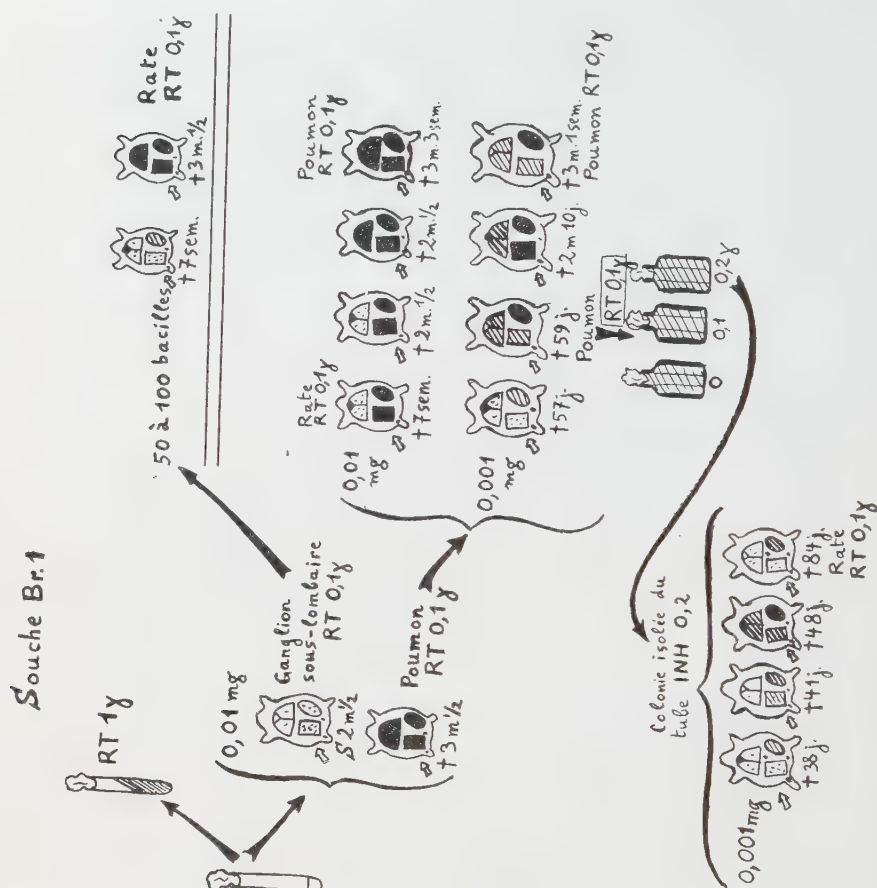 Souche Br.1
RT 1γ
0,01 mg
Ganglion
sous-lombaire
RT 0,1γ
S 2m½
Poumon
RT 0,1γ
+3m½
50 à 100 bacilles
+7sem.
+3m.½
Rate
RT 0,1γ
0,01
mg
Rate
RT 0,1γ
+7sem.
+2m.½
+2m.½
+3m.3sem.
Poumon
RT 0,1γ
0,001
mg
+57j.
+59j.
Poumon
RT 0,1γ
+2m10j.
+3m.1sem.
Poumon RT 0,1γ
0
0,1
0,2γ
Colonie isolée du
tube INH 0,2
0,001mg
+38j.
+41j.
+48j.
+84j.
Rate
RT 0,1γ